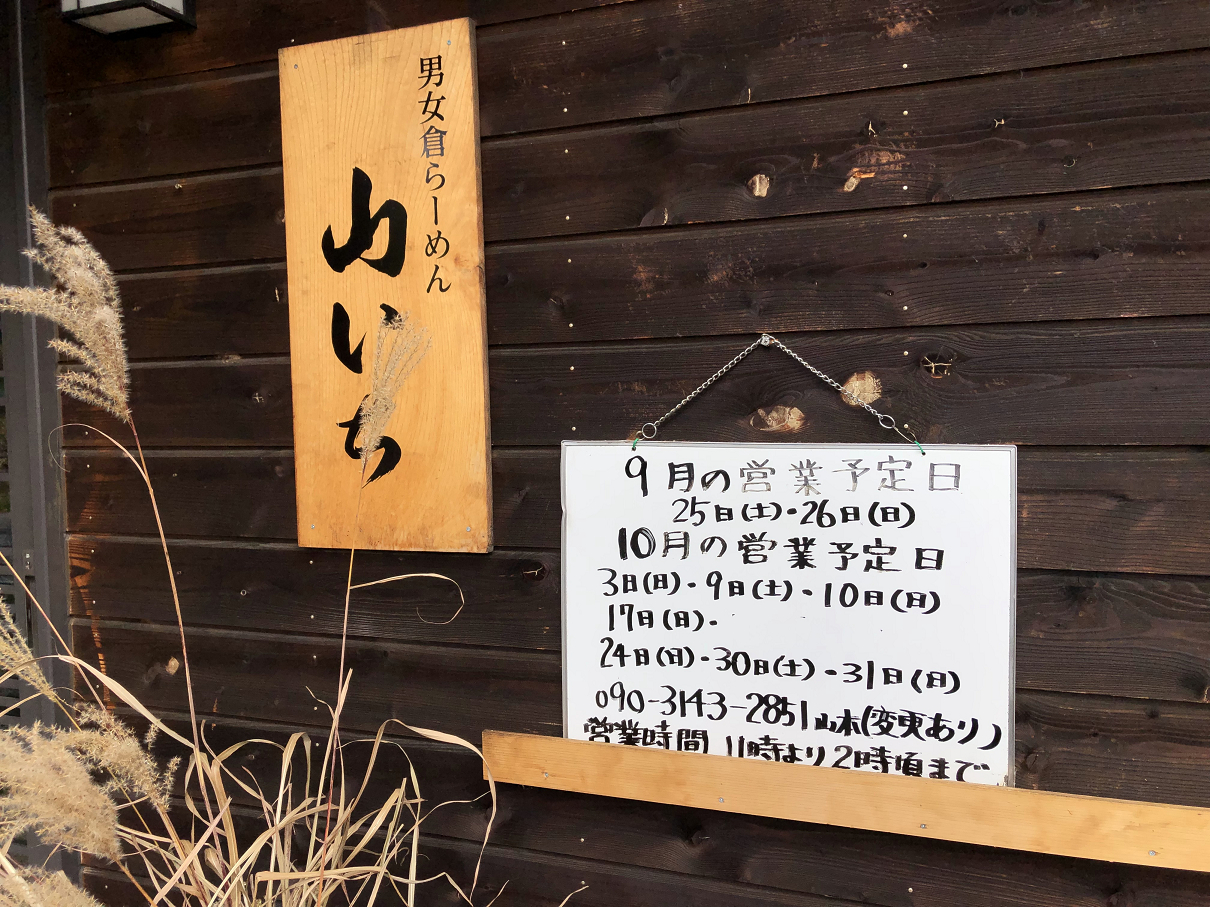 男女倉らーめん
山いち
9月の営業予定日
25日(土)・26日(日)
10月の営業予定日
3日(日)・9日(土)・10日(日)
17日(日)・
24日(日)・30日(土)・31日(日)
090-3143-2851山本(変更あり)
営業時間 11時より2時頃まで